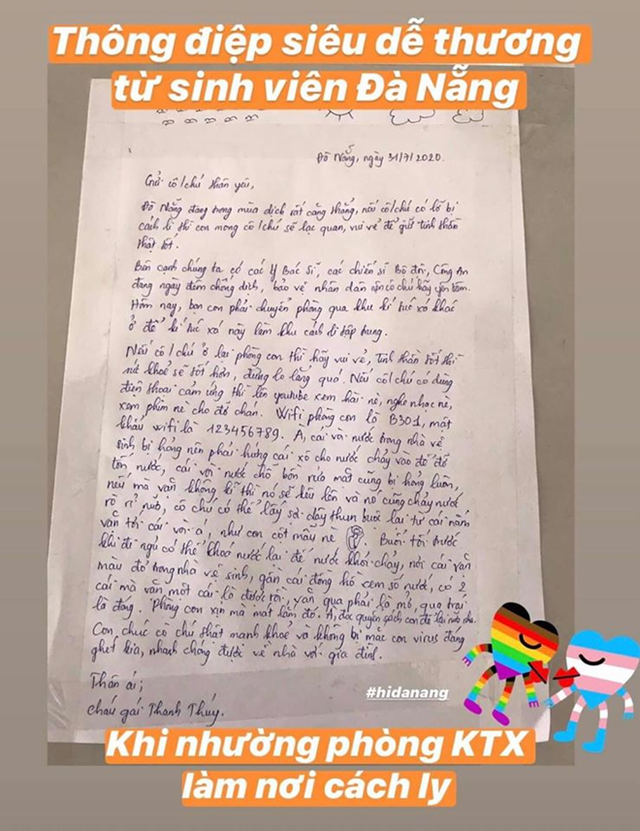 Thông điệp siêu dễ thương
từ sinh viên Đà Nẵng
Đà Nẵng, ngày 31/7/2020.
Gửi cô/chú thân yêu,
Đà Nẵng đang trong mùa dịch rất căng thẳng, nếu cô/chú có lỡ bị
cách li thì con mong cô/chú sẽ lạc quan, vui vẻ để giữ tinh thần
thật tốt.
Bên cạnh chúng ta có các Y Bác Sĩ, các chiến sĩ Bộ đội, Công An
đang ngày đêm chống dịch, bảo vệ nhân dân nên cô chú hãy yên tâm.
Hôm nay, bọn con phải chuyển phòng qua khu kí túc xá khác
ở để kí túc xá này làm khu cách li tập trung.
Nếu cô/chú ở lại phòng con thì hãy vui vẻ, tinh thần tốt thì
sức khoẻ sẽ tốt hơn, đừng lo lắng quá. Nếu cô/chú có dùng
điện thoại cảm ứng thì lên youtube xem hài nè, nghe nhạc nè,
xem phim nè cho đỡ chán. Wifi phòng con là B301, mật
khẩu wifi là 123456789. À, cái vòi nước trong nhà vệ
sinh bị hỏng nên phải hứng cái xô cho nước chảy vào đó để
tốn nước, cái vòi nước chỗ bồn rửa mặt cũng bị hỏng luôn,
nếu mà vặn không kĩ thì nó sẽ kêu lên và nó cũng chảy nước
rò rỉ nữa, cô chú có thể lấy sợi dây thun buộc lại từ cái nắm
vặn tới cái vòi á, như con cột mấy nè Buổi tối trước
khi đi ngủ có thể khoá nước lại để nước khỏi chảy, nới cái van
màu đỏ trong nhà vệ sinh, gần cái đồng hồ xem số nước, có 2
cái mà vặn một cái là được rồi, vặn qua phải là mở, qua trái
là đóng. Phòng con xịn mà mát lắm đó. À, đọc quyển sách con để lại nữa nha.
Con chúc cô chú thật mạnh khoẻ và không bị mắc con virus đáng
ghét kia, nhanh chóng được về nhà với gia đình.
Thân ái,
cháu gái Thanh Thúy.
#hidanang
Khi nhường phòng KTX
làm nơi cách ly